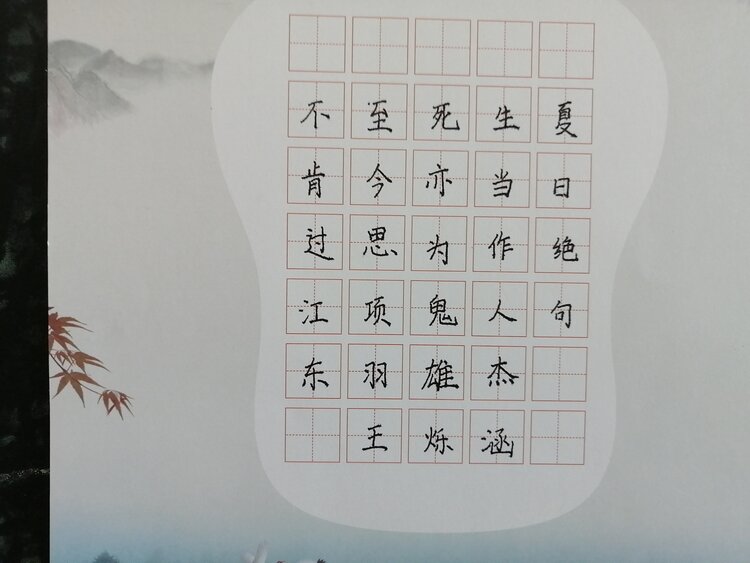 夏日绝句
生当作人杰
死亦为鬼雄
至今思项羽
不肯过江东
王烁涵